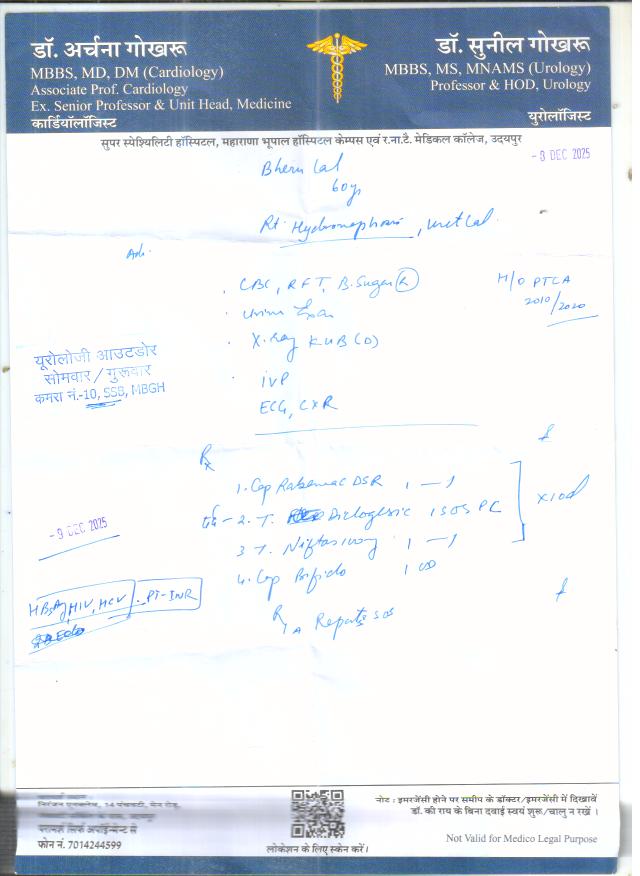 डॉ. अर्चना गोखरू
MBBS, MD, DM (Cardiology)
Associate Prof. Cardiology
Ex. Senior Professor & Unit Head, Medicine
कार्डियॉलॉजिस्ट
डॉ. सुनील गोखरू
MBBS, MS, MNAMS (Urology)
Professor & HOD, Urology
युरोलॉजिस्ट
सुपर स्पेश्यिलिटी हॉस्पिटल, महाराणा भूपाल हॉस्पिटल केम्पस एवं र.ना.टै. मेडिकल कॉलेज, उदयपुर
- 8 DEC 2025
Bheru Lal
60y
Rt. Hydronephosis,
Adv.
CBC, RFT, B.Sugar (R)
H/O PTCA
2010/2020
X.Ray KUB (D)
IVP
ECG, CXR
यूरोलोजी आउटडोर
सोमवार / गुरूवार
कमरा नं.-10, SSB, MBGH
Rx
1. Cap Rabemac DSR 1 — 1
2. T. Diclogesic 1 SOS PC
x10d
3 T. 1 — 1
4. Cap Bifido 1 OD
- 9 DEC 2025
HBsAg, HIV, HCV, PT-INR
R/A Reports
निरंजन एनक्लेव, 14 पंचवटी, मेन रोड,
फोन नं. 7014244599
लोकेशन के लिए स्केन करें।
नोट : इमरजेंसी होने पर समीप के डॉक्टर/इमरजेंसी में दिखावें
डॉ. की राय के बिना दवाई स्वयं शुरू/चालु न रखें ।
Not Valid for Medico Legal Purpose